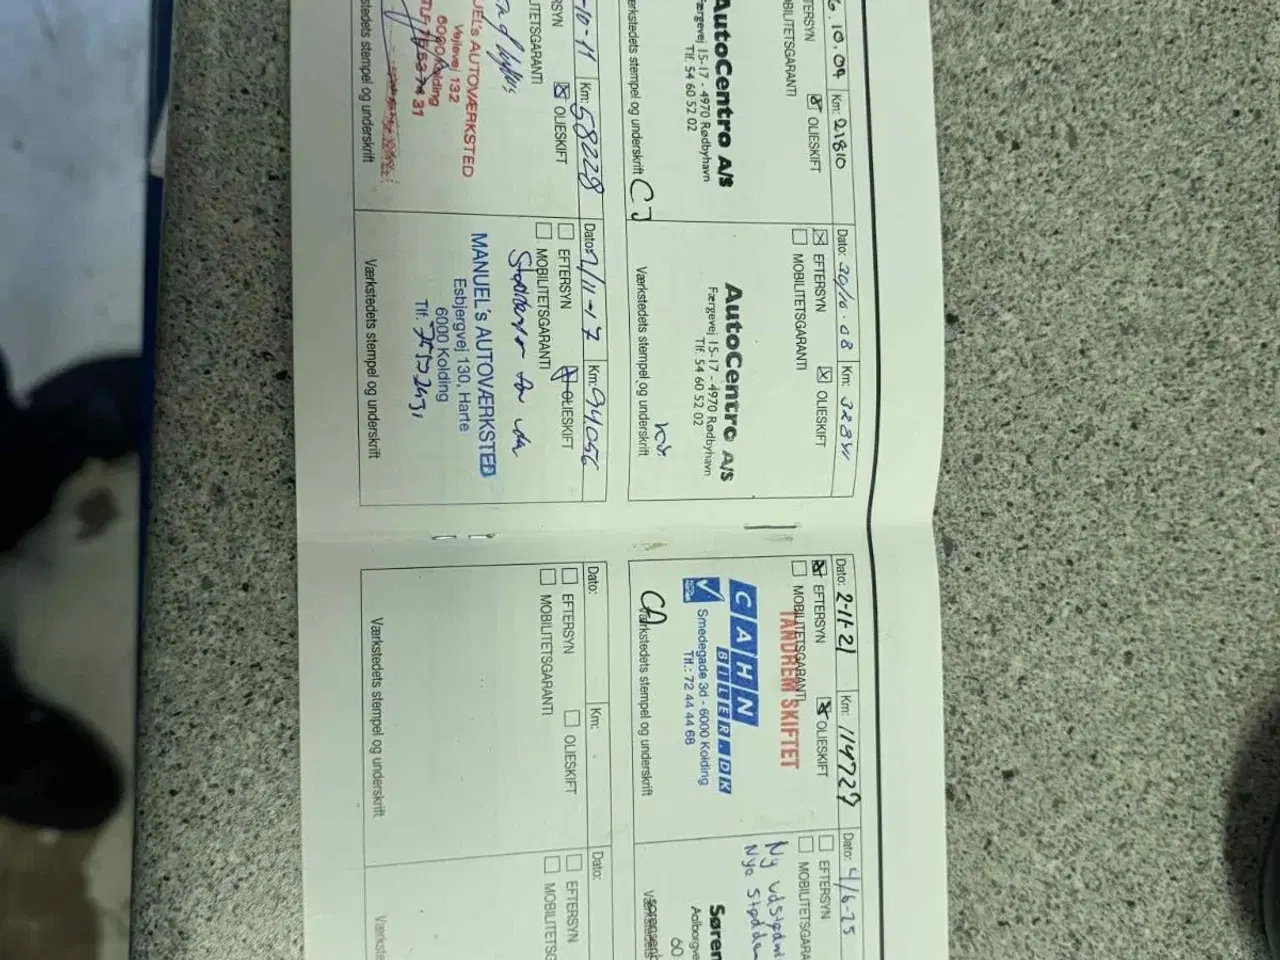 6.10.09 Km: 21810
FTERSYN ☒ OLIESKIFT
MOBILITETSGARANTI
AutoCentro A/S
Færgevej 15-17 - 4970 Rødbyhavn
Tlf. 54 60 52 02
Værkstedets stempel og underskrift CJ
Dato: 30/10.08 Km:
☒ EFTERSYN ☒ OLIESKIFT
☐ MOBILITETSGARANTI
AutoCentro A/S
Færgevej 15-17 - 4970 Rødbyhavn
Tlf. 54 60 52 02
Værkstedets stempel og underskrift
Dato: 2-11-21 Km: 119729
☒ EFTERSYN ☒ OLIESKIFT
☐ MOBILITETSGARANTI
TANDREM SKIFTET
CAHN
BILER.DK
Smedegade 3d - 6000 Kolding
Tlf.: 72 44 44 68
Værkstedets stempel og underskrift
Dato: 4/6-25
☐ EFTERSYN
☐ MOBILITETSGARANTI
Ny udstødni
Nye støddæm
Søren
Aalborgve
60
Værkstedets
-10-11 Km: 58228
RSYN ☒ OLIESKIFT
LITETSGARANTI
UEL's AUTOVÆRKSTED
Vejlevej 132
6000 Kolding
TLF. 31
stedets stempel og underskrift
Dato: /11-17 Km: 94056
☐ EFTERSYN ☒ OLIESKIFT
☐ MOBILITETSGARANTI
MANUEL's AUTOVÆRKSTED
Esbjergvej 130, Harte
6000 Kolding
Tlf.
Værkstedets stempel og underskrift
Dato: Km:
☐ EFTERSYN ☐ OLIESKIFT
☐ MOBILITETSGARANTI
Værkstedets stempel og underskrift
Dato:
☐ EFTERSYN
☐ MOBILITETSG
Værkstede